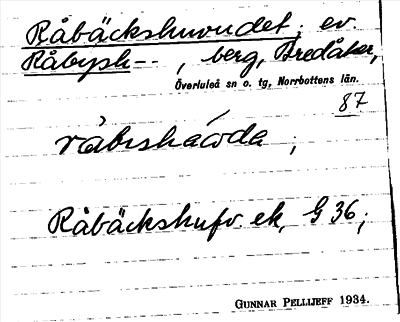 Råbäckshuvudet, ev.
Råbysk--, berg, Bredåker,
Överluleå sn o. tg, Norrbottens län.
87
råbᵻshåωda ;
Råbäckshufv. ek, G 36;
GUNNAR PELLIJEFF 1934.